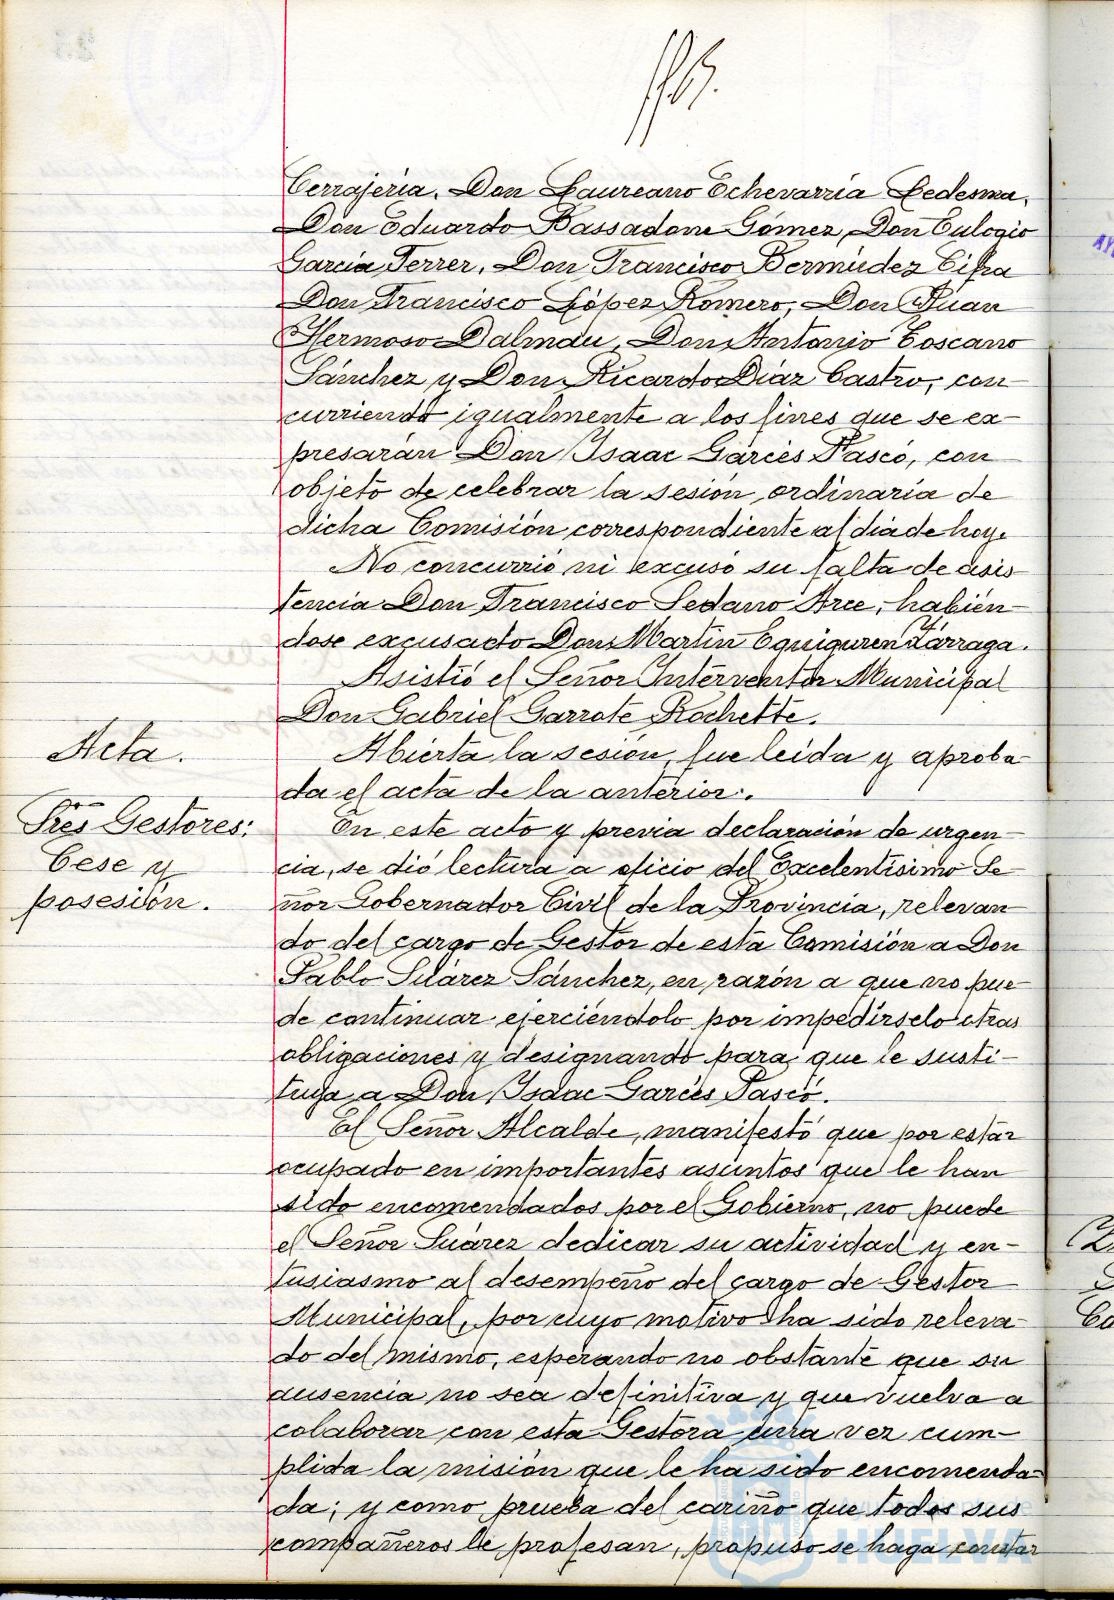 Cerrajería, Don Laureano Echevarría Ledesma,
Don Eduardo Bassadone Gómez, Don Eulogio
García Ferrer, Don Francisco Bermúdez Cifra
Don Francisco López Romero, Don Juan
Hermoso Dalmau, Don Antonio Toscano
Sánchez y Don Ricardo Díaz Castro, con-
curriendo igualmente a los fines que se ex-
presarán Don Isaac Garcés Pascó, con
objeto de celebrar la sesión ordinaria de
dicha Comisión correspondiente al día de hoy.
No concurrió ni excusó su falta de asis
tencia Don Francisco Sedano Arce, habién-
dose excusado Don Martín Eguiguren Yárraga.
Asistió el Señor Interventor Municipal
Don Gabriel Garrote Rochette.
Acta.
Abierta la sesión, fue leída y aproba-
da el acta de la anterior.
Tres Gestores:
Cese y
posesión.
En este acto y previa declaración de urgen-
cia, se dió lectura a oficio del Excelentísimo Se-
ñor Gobernador Civil de la Provincia, relevan
do del cargo de Gestor de esta Comisión a Don
Pablo Suárez Sánchez, en razón a que no pue-
de continuar ejerciéndolo por impedírselo otras
obligaciones y designando para que le susti-
tuya a Don Isaac Garcés Pascó.
El Señor Alcalde, manifestó que por estar
ocupado en importantes asuntos que le han
sido encomendados por el Gobierno, no puede
el Señor Suárez dedicar su actividad y en-
tusiasmo al desempeño del cargo de Gestor
Municipal, por cuyo motivo ha sido releva-
do del mismo, esperando no obstante que su
ausencia no sea definitiva y que vuelva a
colaborar con esta Gestora una vez cum-
plida la misión que le ha sido encomenda-
da; y como prueba del cariño que todos sus
compañeros le profesan, propuso se haga constar
HUELVA